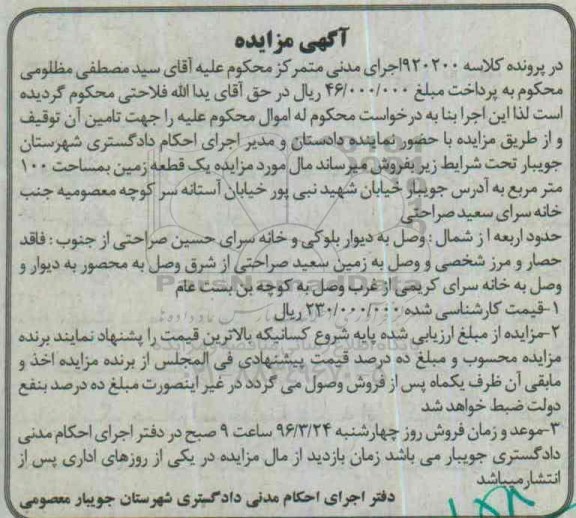 آگهی مزایده
در پرونده کلاسه ۹۲۰۲۰۰اجرای مدنی متمرکز محکوم علیه آقای سید مصطفی مظلومی
محکوم به پرداخت مبلغ ۴۶/۰۰۰/۰۰۰ ریال در حق آقای یدا الله فلاحتی محکوم گردیده
است لذا این اجرا بنا به درخواست محکوم له اموال محکوم علیه را جهت تامین آن توقیف
و از طریق مزایده با حضور نماینده دادستان و مدیر اجرای احکام دادگستری شهرستان
جویبار تحت شرایط زیر بفروش میرساند مال مورد مزایده یک قطعه زمین بمساحت ۱۰۰
متر مربع به آدرس جویبار خیابان شهید نبی پور خیابان آستانه سر کوچه معصومیه جنب
خانه سرای سعید صراحتی
حدود اربعه از شمال : وصل به دیوار بلوکی و خانه سرای حسین صراحتی از جنوب : فاقد
حصار و مرز شخصی و وصل به زمین سعید صراحتی از شرق وصل به محصور به دیوار و
وصل به خانه سرای کریمی از غرب وصل به کوچه بن بست عام
۱-قیمت کارشناسی شده ۲۳۰/۰۰۰/۰۰۰ ریال
۲-مزایده از مبلغ ارزیابی شده پایه شروع کسانیکه بالاترین قیمت را پشنهاد نمایند برنده
مزایده محسوب و مبلغ ده درصد قیمت پیشنهادی فی المجلس از برنده مزایده اخذ و
مابقی آن ظرف یکماه پس از فروش وصول می گردد در غیر اینصورت مبلغ ده درصد بنفع
دولت ضبط خواهد شد
۳-موعد و زمان فروش روز چهارشنبه ۹۶/۳/۲۴ ساعت ۹ صبح در دفتر اجرای احکام مدنی
دادگستری جویبار می باشد زمان بازدید از مال مزایده در یکی از روزهای اداری پس از
انتشار میباشد
دفتر اجرای احکام مدنی دادگستری شهرستان جویبار معصومی